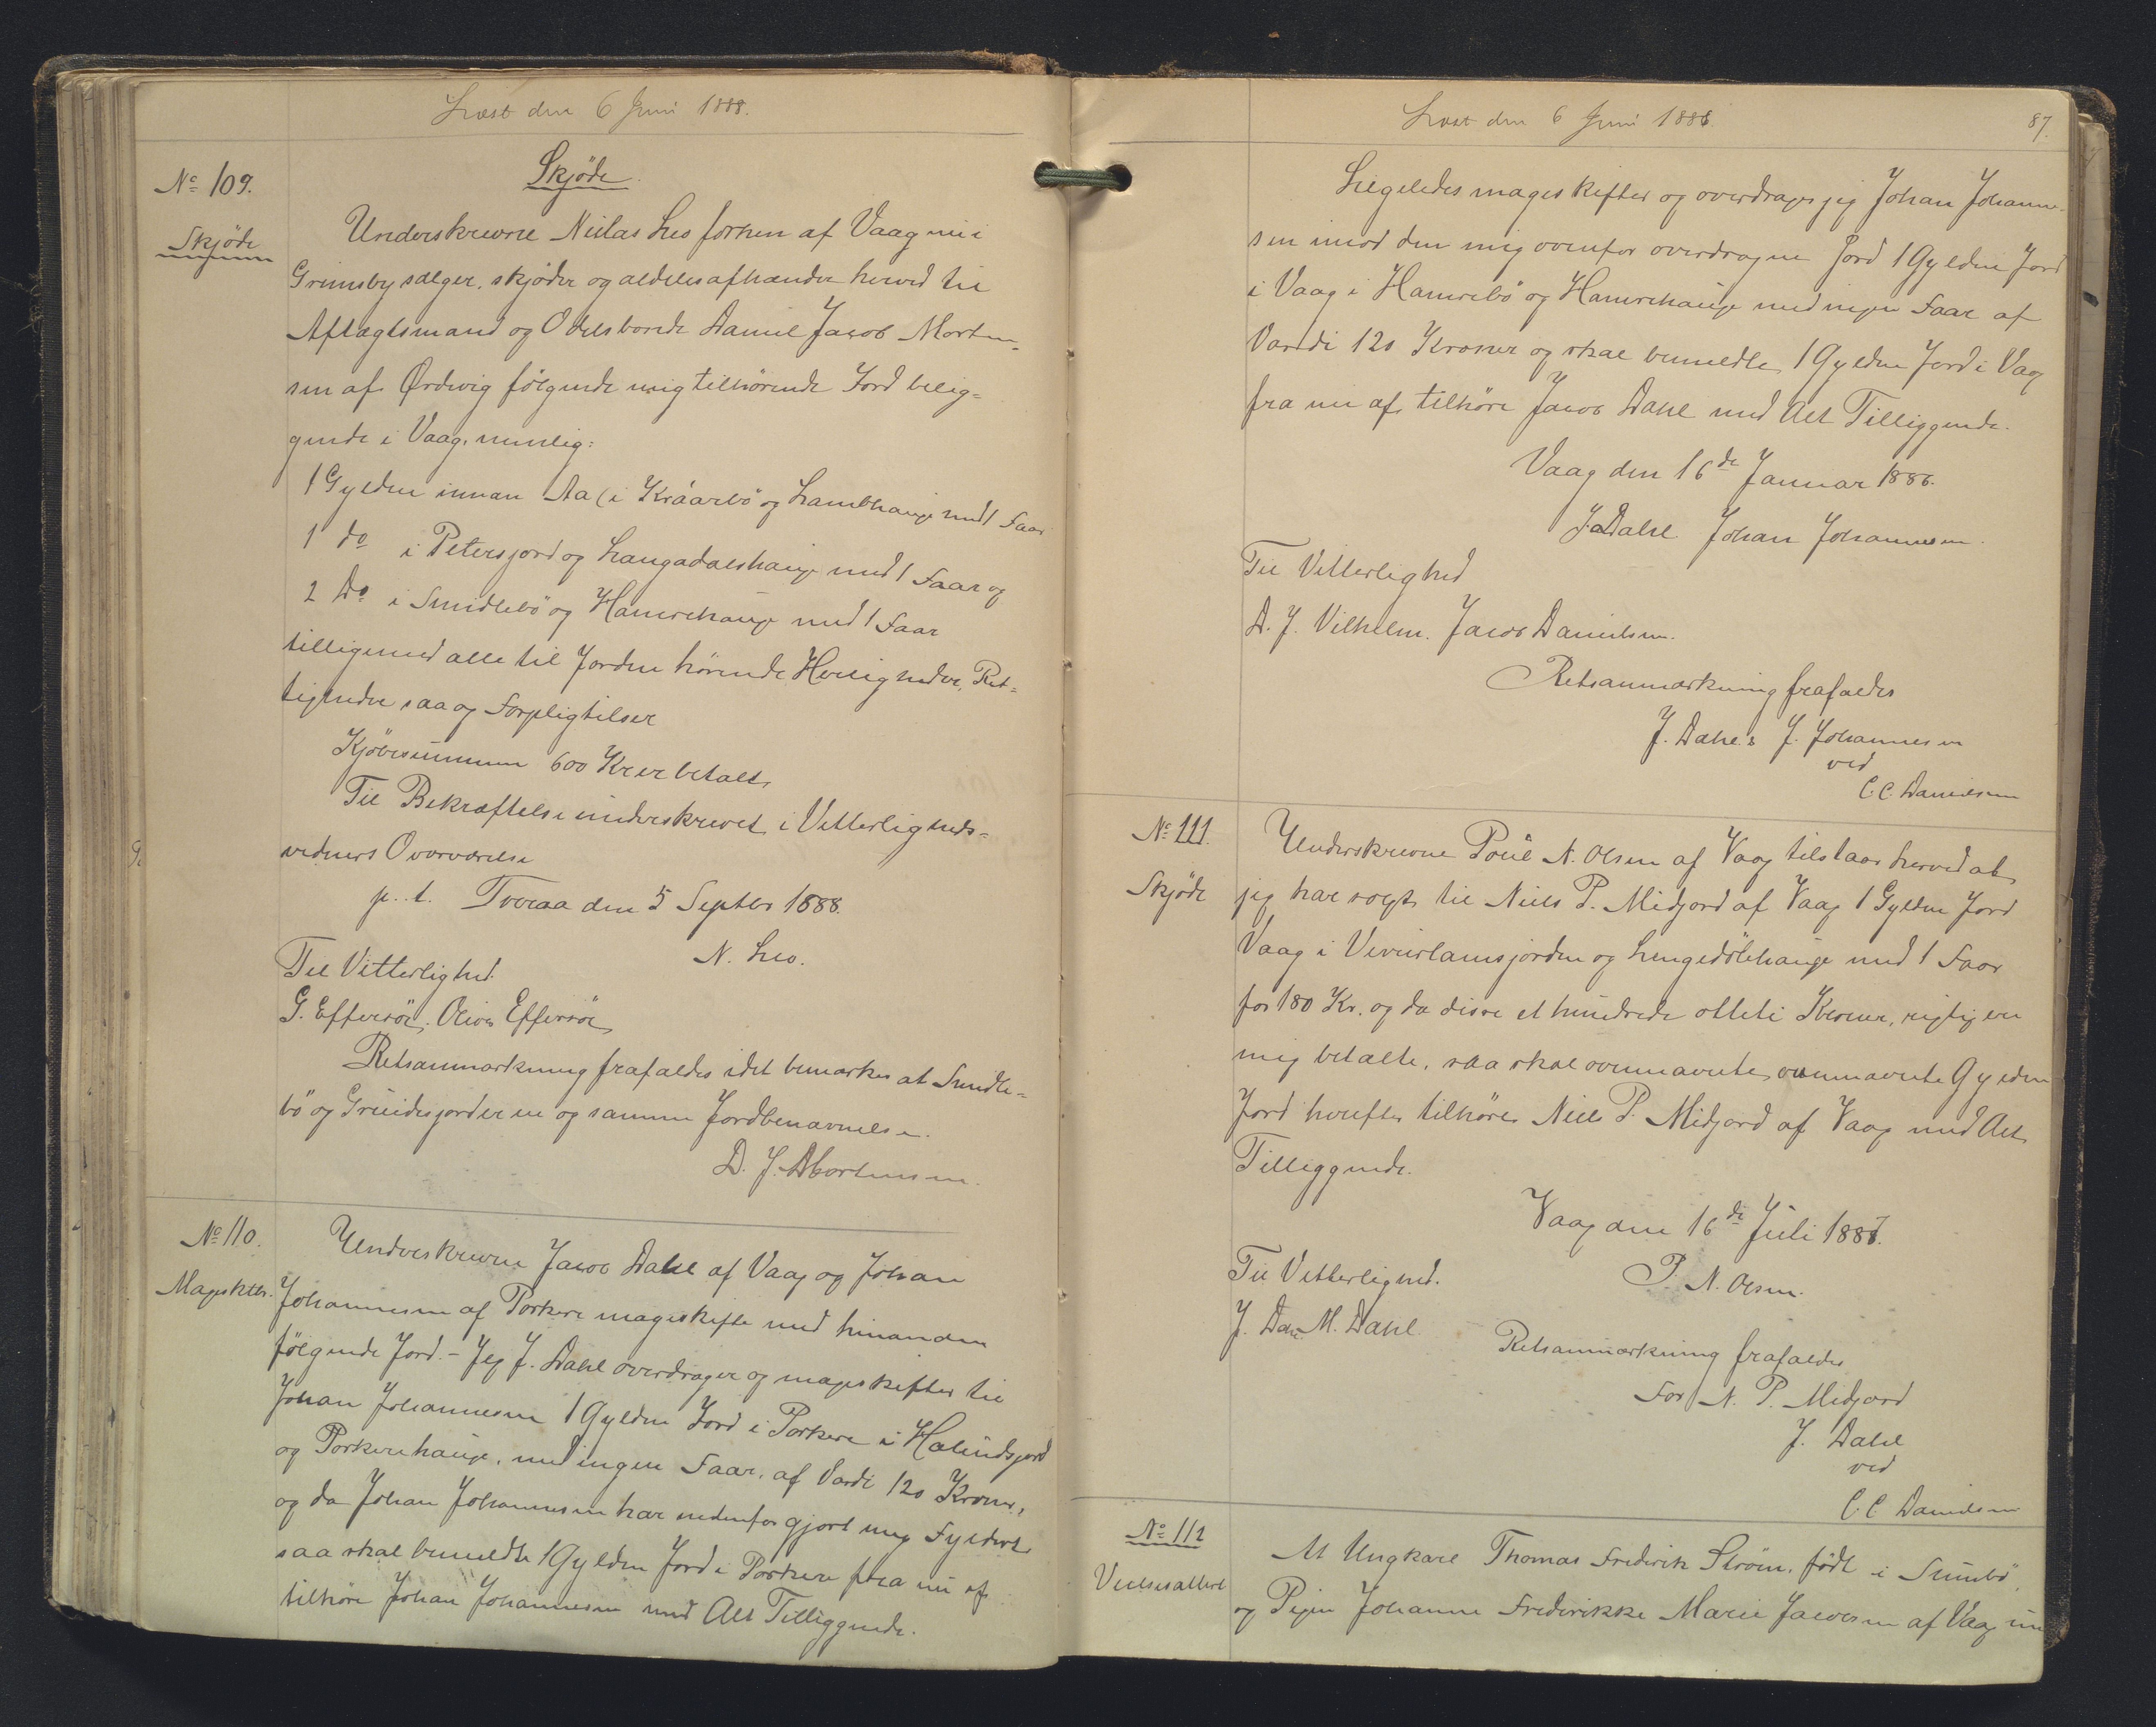 Læst den 6 Juni 1888.
No 109.
Skjøde
Skjøde.
Underskrevne Niclas Leo forhen af Vaag nu i
Grimsby sælger, skjøder og aldeles afhænder herved til
Aftægtsmand og Odelsbonde Daniel Jacob Morten-
sen af Ørdevig følgende mig tilhørende Jord belig-
gende i Vaag, nemlig:
1 Gylden innan Aa (i Kráarbø og Lambhauge med 1 Faar
1 do i Petersjord og Langadalshauge med 1 Faar og
2 Do i Smidlebø og Hamrehauge med 1 Faar
tilligemed alle til Jorden hørende Herligheder, Ret-
tigheder saa og Forpligtilser
Kjøbesummen 600 Kr er betalt.
Til Bekræftelse underskrevet i Vitterligheds-
vidners Overværelse
p. t. Tveraa den 5 Septbr 1888.
N. Leo.
Til Vitterlighed.
G. Effersøe, Oliver Effersøe
Retsanmærkning frafaldes idet bemærkes at Smidle-
bø og Gruidesjord er en og samme Jordbenævnelse.
D. J. Mortensen.
No 110.
Mageskifte.
Underskrevne Jacob Dahl af Vaag og Johan
Johannesen af Porkere mageskifte med hinanden
følgende Jord. - Jeg J. Dahl overdrager og mageskifter til
Johan Johannesen 1 Gylden Jord i Porkere i Halindsjord
og Porkerehauge, med ingen Faar, af Værdi 120 Kroner,
og da Johan Johannesen har nedenfor gjort mig Fyldest
saa skal bemeldte 1 Gylden Jord i Porkere fra nu af
tilhøre Johan Johannesen med Alt Tilliggende.
Læst den 6 Juni 1888.
87.
Ligeledes mageskifter og overdrager jeg Johan Johanne-
sen imod den mig ovenfor overdragne Jord 1 Gylden Jord
i Vaag i Hamrebø og Hamrehauge med ingen Faar af
Værdi 120 Kroner og skal bemeldte 1 Gylden Jord i Vaag
fra nu af tilhøre Jacob Dahl med Alt Tilliggende.
Vaag den 16de Januar 1886.
J. Dahl Johan Johannesen.
Til Vitterlighed
D. J. Vilhelm. Jacob Danielsen.
Retsanmærkning frafaldes
J. Dahl & J. Johannesen
ved
C. C. Danielsen
No 111.
Skjøde
Underskrevne Poul N. Olsen af Vaag tilstaar herved at
jeg har solgt til Niels P. Midjord af Vaag 1 Gylden Jord
Vaag i og Lengedølehauge med 1 Faar
for 180 Kr. og da disse et hundrede otteti Kroner, rigtig er
mig betalte, saa skal ovennævnte ovennævnte Gylden
Jord herefter tilhøre Niels P. Midjord af Vaag med Alt
Tilliggende.
Vaag den 16de Juli 1887.
Til Vitterlighed.
P. N. Olsen.
J. Dahl. M. Dahl.
Retsanmærkning frafaldes
For N. P. Midjord
J. Dahl
ved
C. C. Danielsen
No 112
Vielsesattest
At Ungkarl Thomas Frederik Strøm, født i Sumbø,
og Pigen Johanne Frederikke Marie Jacobsen af Vaag nu